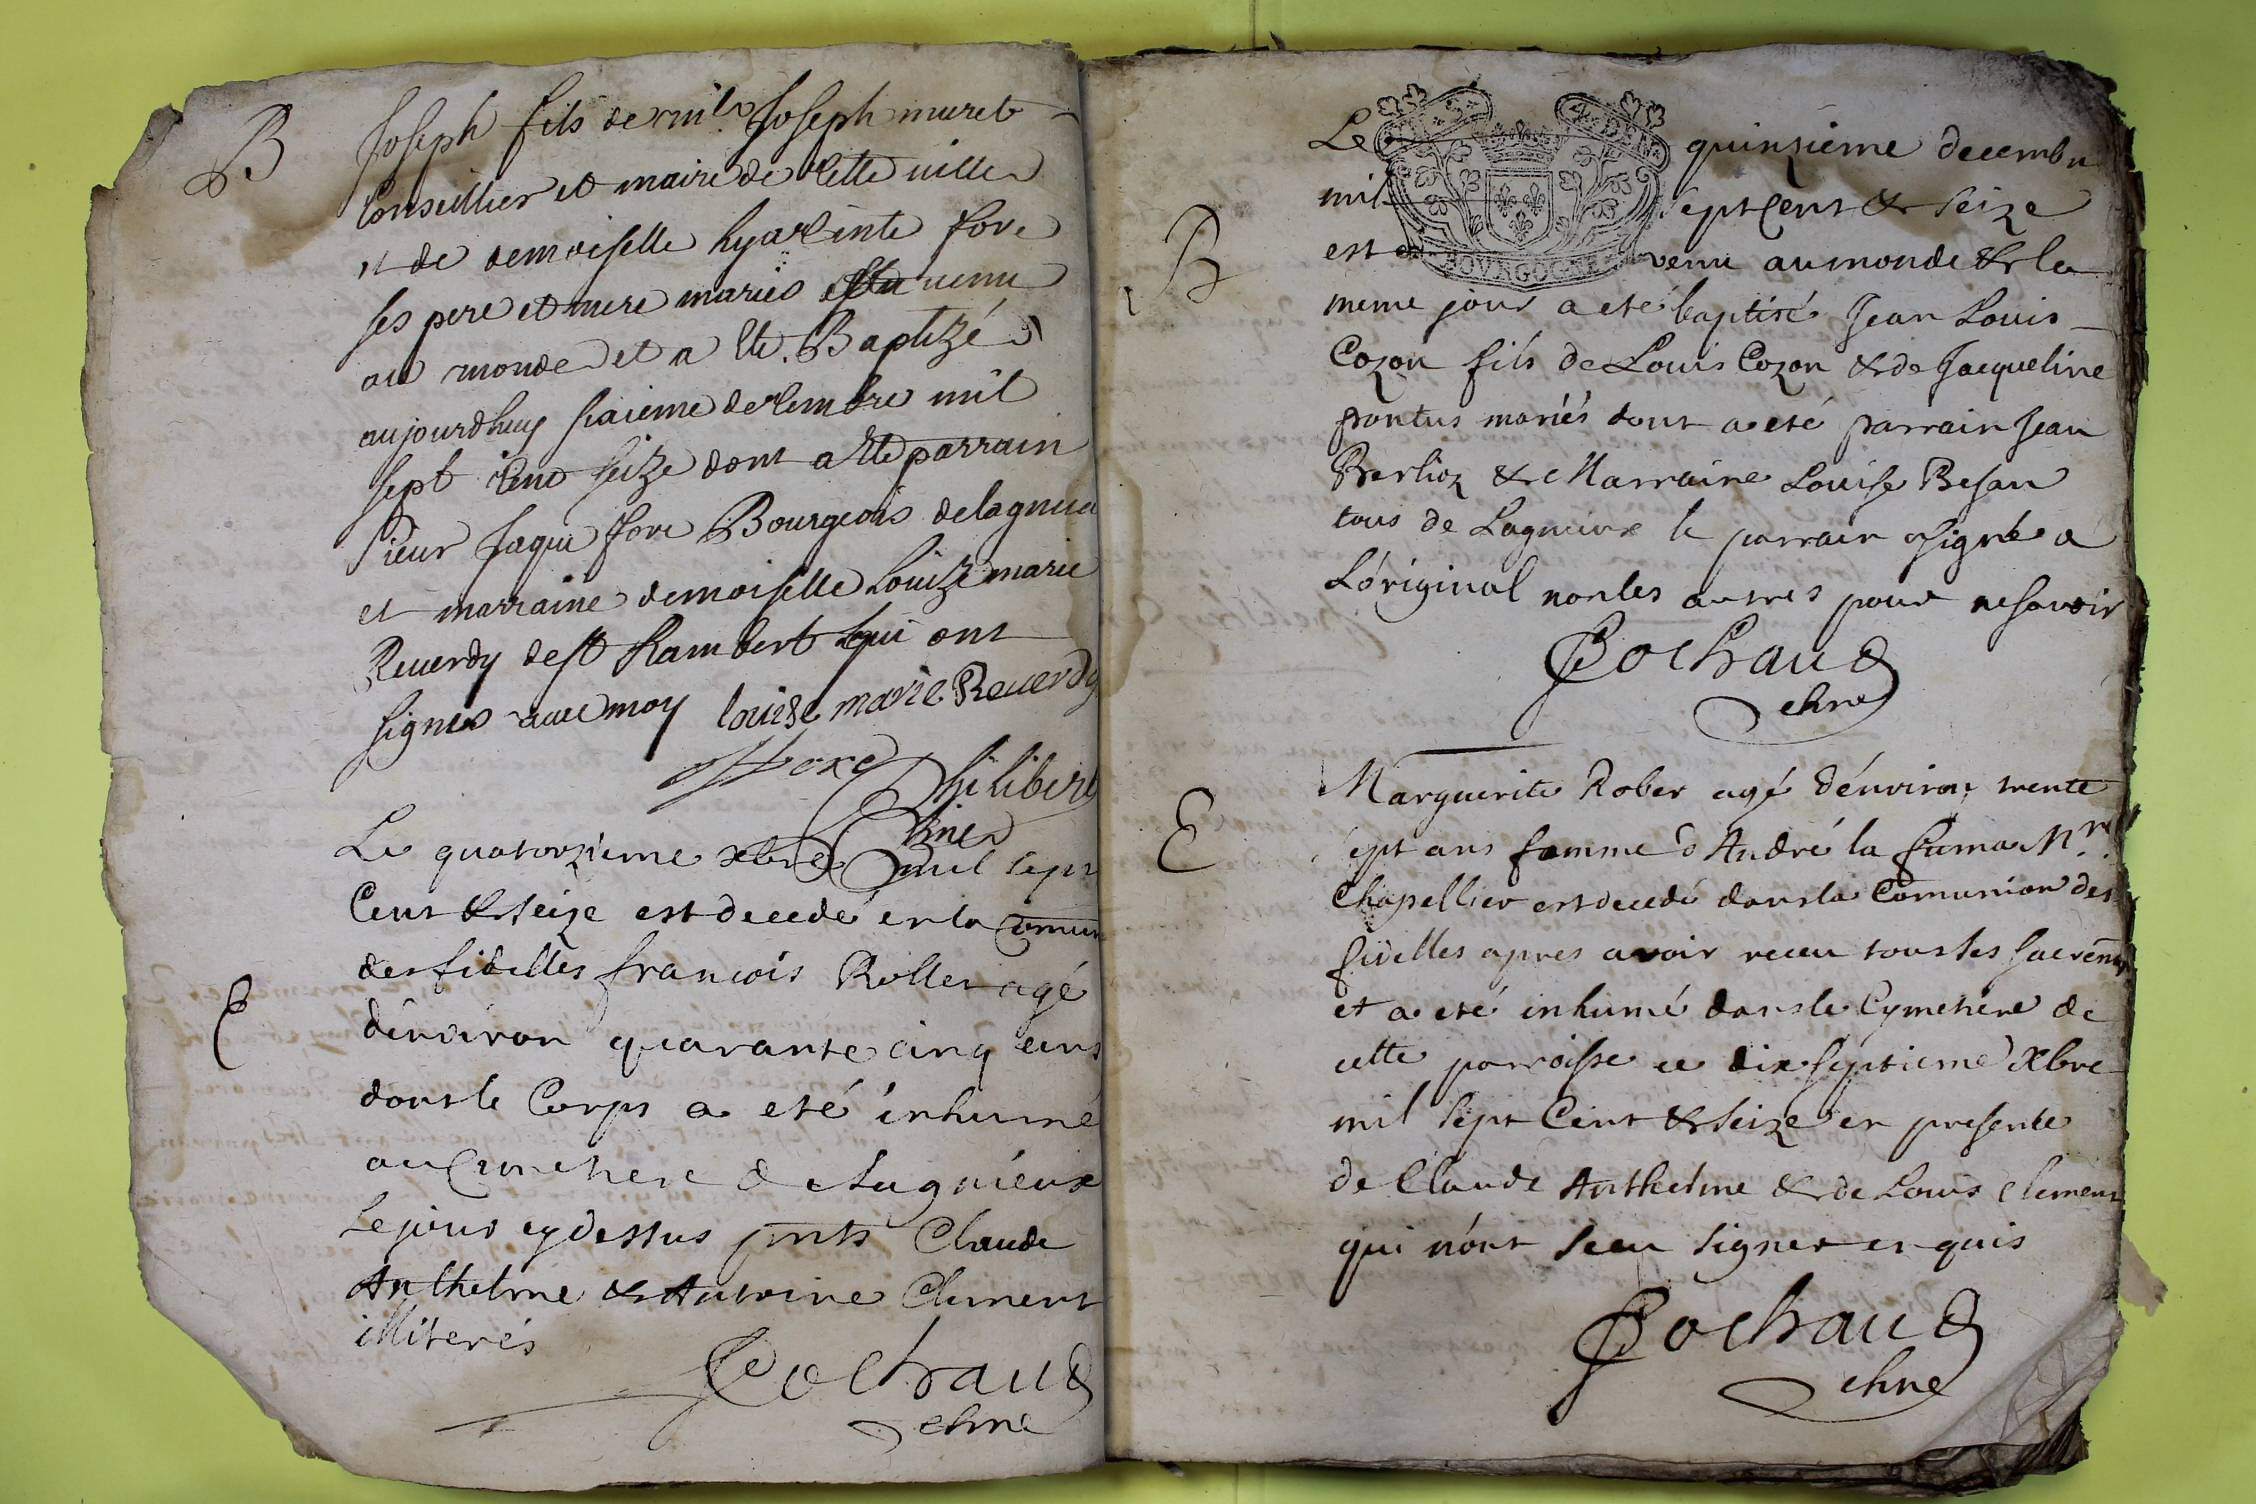 B
Joseph fils de mre Joseph muret
Conseillier et maire de cette ville
et de demoiselle hyacinte fore
ses pere et mere mariés est venu
au monde et a ete Baptizé
aujourdhuy sixieme decembre mil
sept cent seize dont a ete parrain
sieur Jaque fore Bourgeois de lagnieu
et marraine demoiselle Louize marie
Reverdy de st Rambert qui ont
signes avec moy louise marie Reverdy
fore Philibert
vicre
Le quatorzieme xbre mil sept
Cent & seize est decedé en la comun
E
des fidelles francois Rollet agé
d'environ quarante cinq ans
dont le Corps a eté inhumé
au Cimetiere de Lagnieux
le jour cy dessus pnts Claude
Anthelme & Antoine Clement
illiterés
Pochaud
chne
Le quinzieme decembre
mil sept Cent & seize
B
est venu au monde & le
BOURGOGNE
meme jour a eté baptisé Jean Louis
Cozon fils de Louis Cozon & de Jacqueline
pontus mariés dont a eté parrain Jean
Berlioz & Marraine Louise Besan
tous de Lagnieux le parrain a signé a
L'original non les autres pour ne savoir
Pochaud
chne
Marguerite Rober agé d'environ trente
E
sept ans femme d'André la fuma Mre
Chapellier est decedé dans la Comunion des
fidelles apres avoir receu tous les sacremts
et a eté inhumé dans le Cymetiere de
cette parroisse ce dix septieme xbre
mil sept Cent & seize en presence
de Claude Anthelme & de Louis Clement
qui n'ont sceu signer enquis
Pochaud
chne